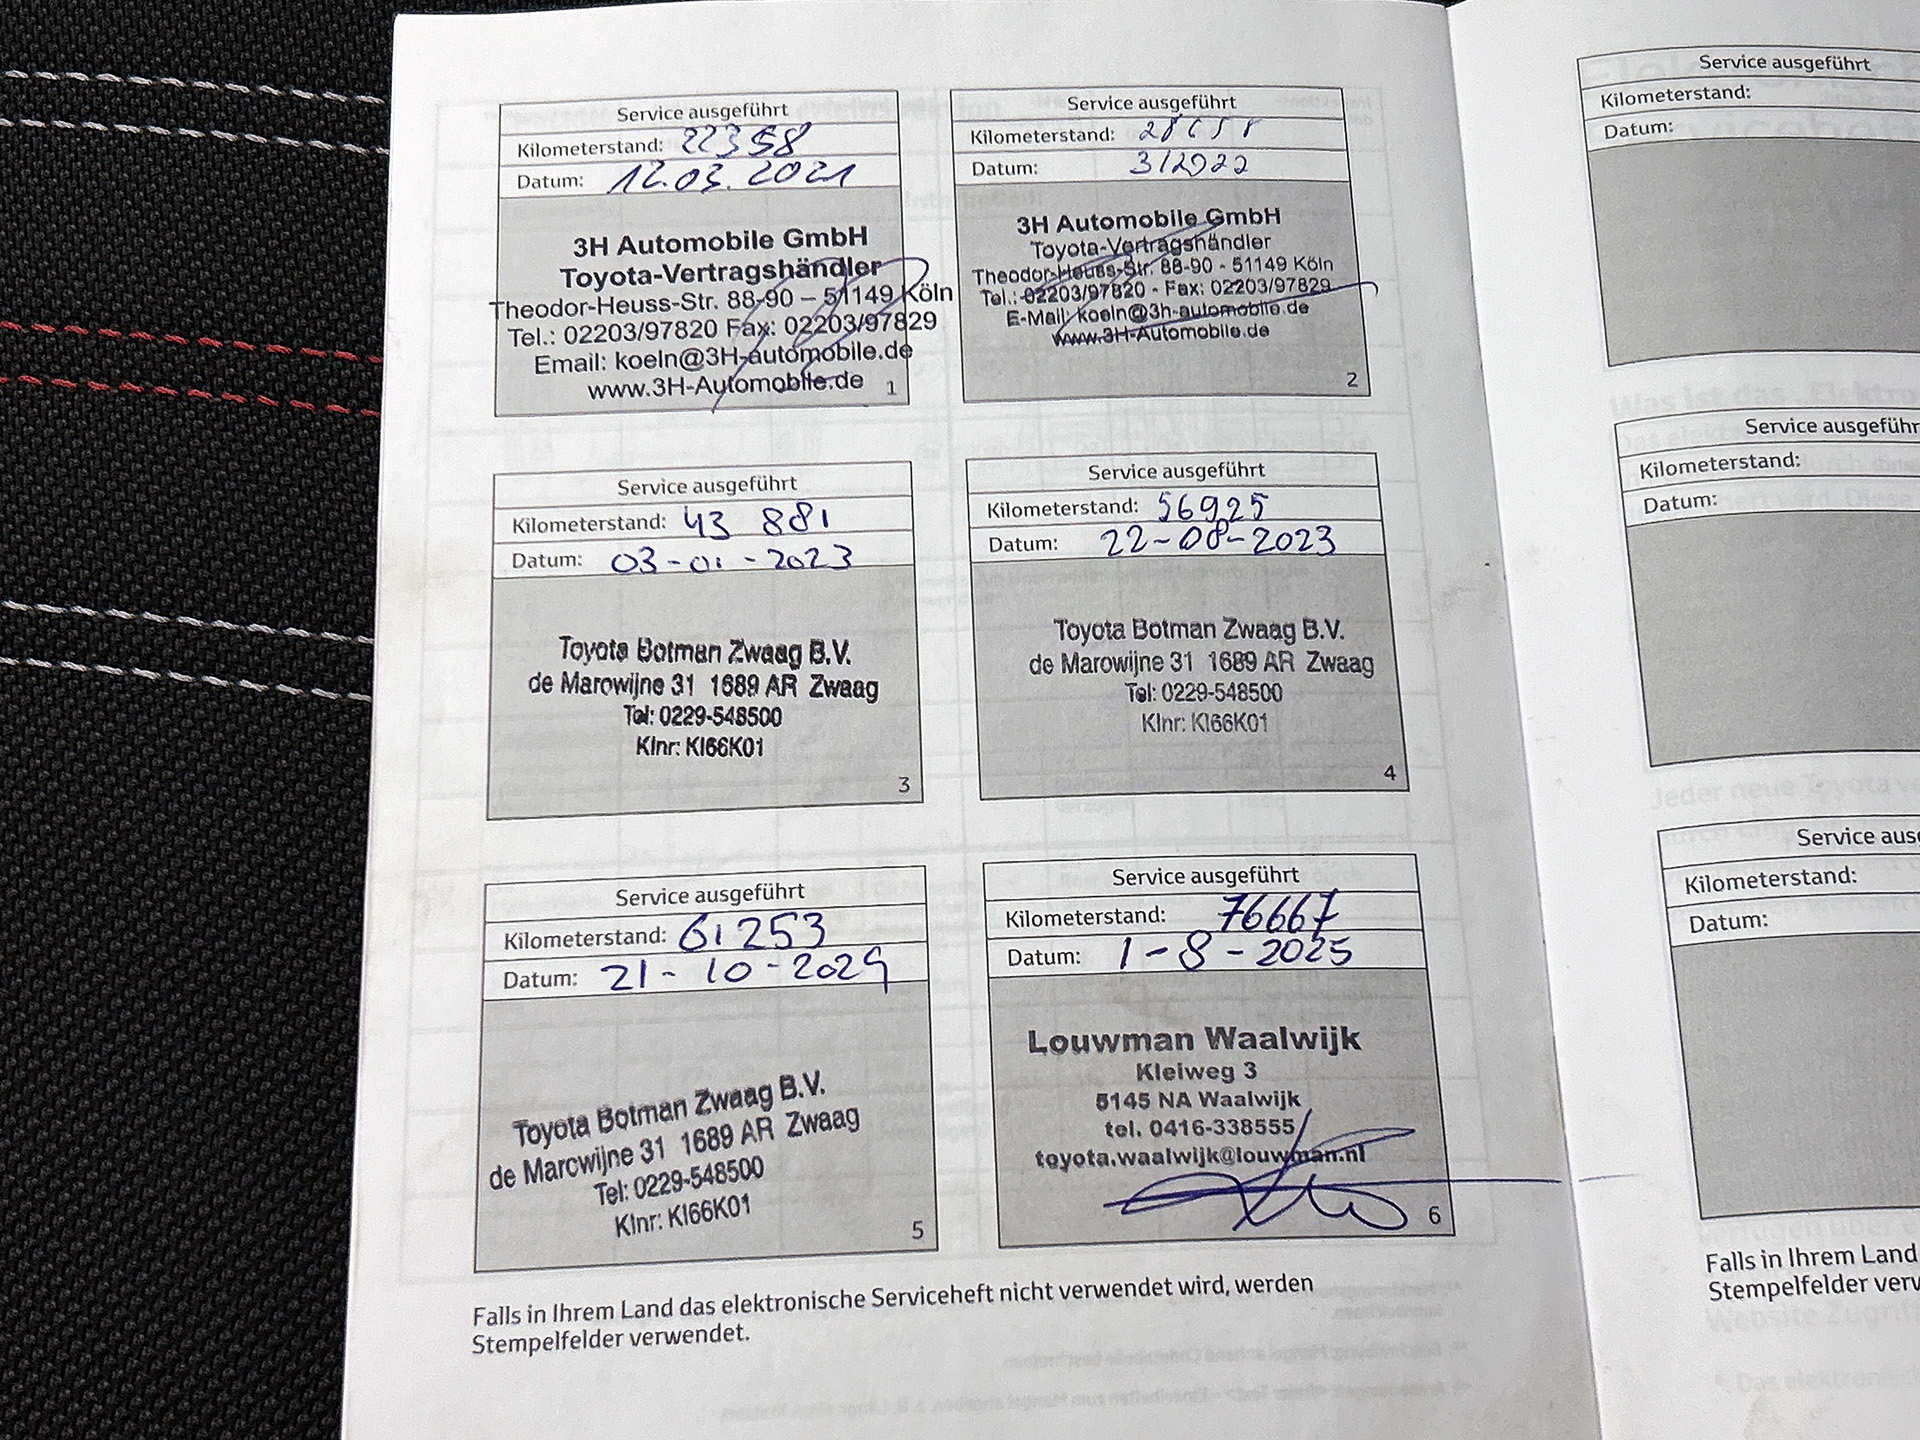 Service ausgeführt
Kilometerstand: 22358
Datum: 12.03.2021
3H Automobile GmbH
Toyota-Vertragshändler
Theodor-Heuss-Str. 88-90 – 51149 Köln
Tel.: 02203/97820 Fax: 02203/97829
Email: koeln@3H-automobile.de
www.3H-Automobile.de
1
Service ausgeführt
Kilometerstand:
Datum: 3/2022
3H Automobile GmbH
Toyota-Vertragshändler
Theodor-Heuss-Str. 88-90 - 51149 Köln
Tel.: 02203/97820 - Fax: 02203/97829
E-Mail: koeln@3h-automobile.de
www.3H-Automobile.de
2
Service ausgeführt
Kilometerstand: 43 881
Datum: 03-01-2023
Toyota Botman Zwaag B.V.
de Marowijne 31 1689 AR Zwaag
Tel: 0229-548500
Klnr: KI66K01
3
Service ausgeführt
Kilometerstand: 56925
Datum: 22-08-2023
Toyota Botman Zwaag B.V.
de Marowijne 31 1689 AR Zwaag
Tel: 0229-548500
Klnr: KI66K01
4
Service ausgeführt
Kilometerstand: 61253
Datum: 21-10-2024
Toyota Botman Zwaag B.V.
de Marowijne 31 1689 AR Zwaag
Tel: 0229-548500
Klnr: KI66K01
5
Service ausgeführt
Kilometerstand: 76667
Datum: 1-8-2025
Louwman Waalwijk
Kleiweg 3
5145 NA Waalwijk
tel. 0416-338555
toyota.waalwijk@louwman.nl
6
Falls in Ihrem Land das elektronische Serviceheft nicht verwendet wird, werden
Stempelfelder verwendet.
Service ausgeführt
Kilometerstand:
Datum:
Service ausgeführ
Kilometerstand:
Datum:
Service ausg
Kilometerstand:
Datum:
Falls in Ihrem Land
Stempelfelder verw